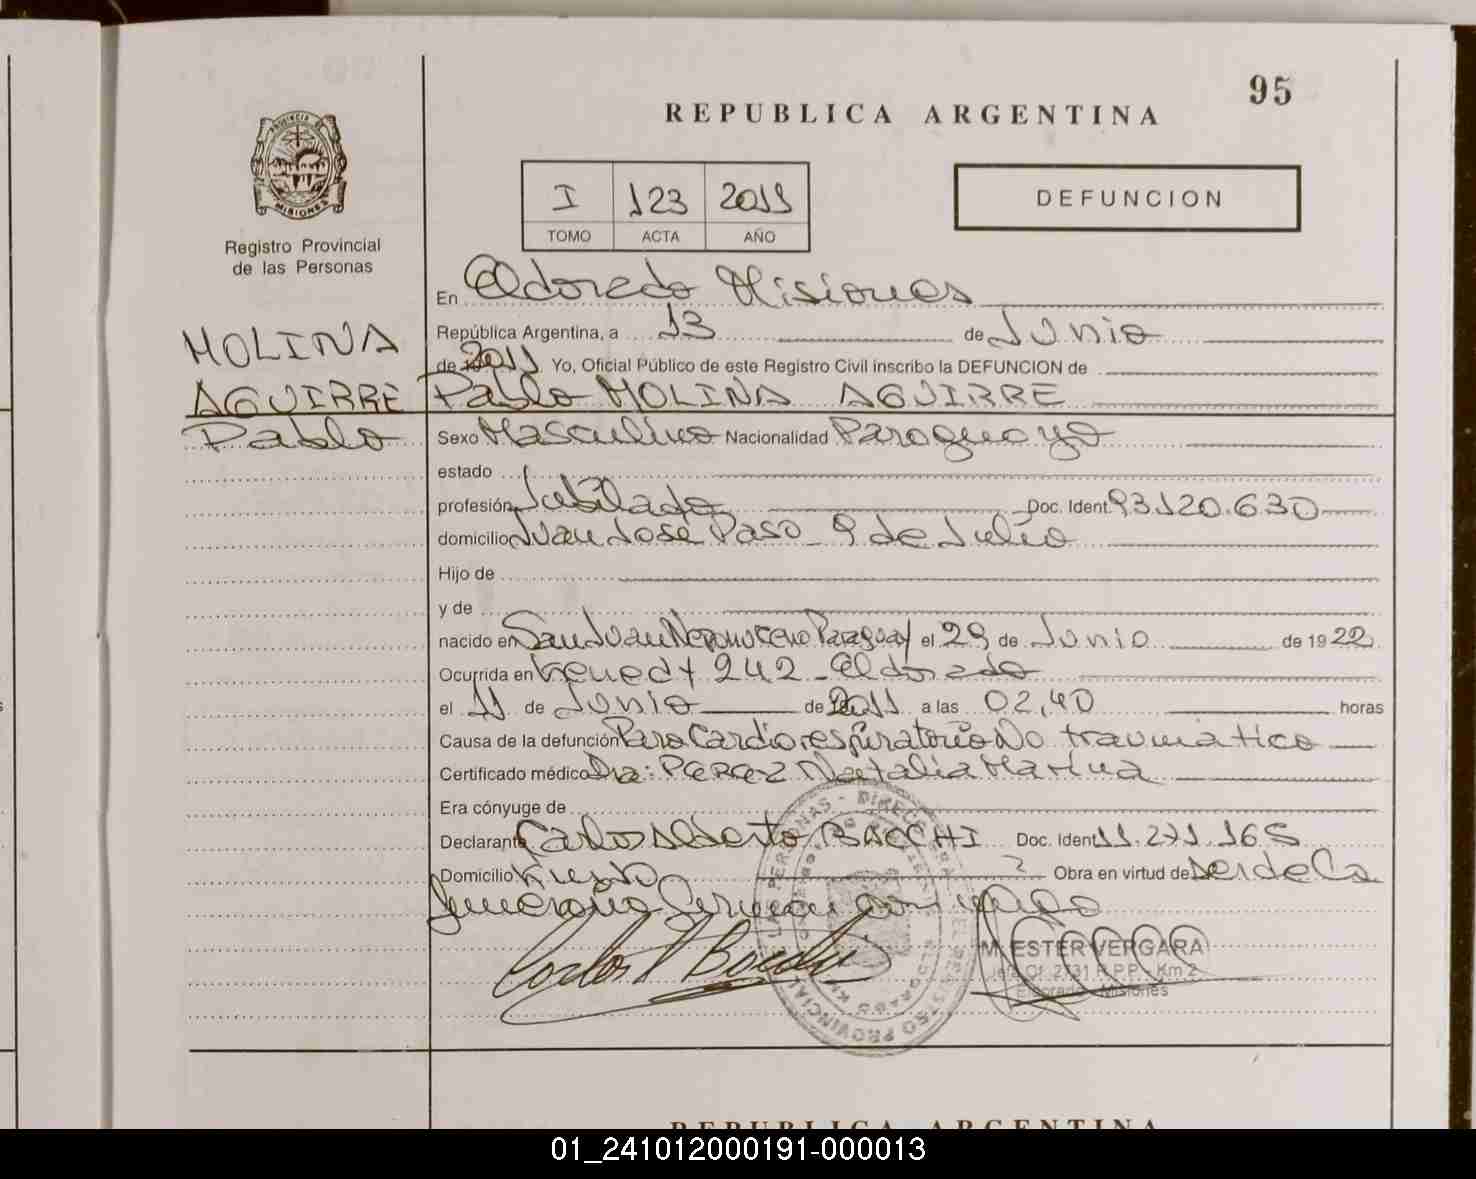 95
REPUBLICA ARGENTINA
PROVINCIA DE
MISIONES
Registro Provincial
de las Personas
I 123 2011
TOMO ACTA AÑO
DEFUNCION
En Eldorado Misiones
República Argentina, a 13 de Junio
de 2011 Yo, Oficial Público de este Registro Civil inscribo la DEFUNCION de
MOLINA
AGUIRRE
Pablo
Pablo MOLINA AGUIRRE
Sexo Masculino Nacionalidad Paraguayo
estado
profesión Jubilado Doc. Ident. 93.120.630
domicilio Juan José Paso - 9 de Julio
Hijo de
y de
nacido en San Juan Nepomuceno Paraguay el 29 de Junio de 1922
Ocurrida en Kenedy 242 - Eldorado
el 11 de Junio de 2011 a las 02,40 horas
Causa de la defunción Paro Cardiorespiratorio No traumatico
Certificado médico Dra: PEREZ Natalia Marina
Era cónyuge de
Declarante Carlos Alberto BACCHI Doc. Ident. 11.271.165
Domicilio Obra en virtud de ser de la
M. ESTER VERGARA
Jefa Of. 2731 R.P.P. - Km 2
Eldorado - Misiones
REPUBLICA ARGENTINA
01_241012000191-000013